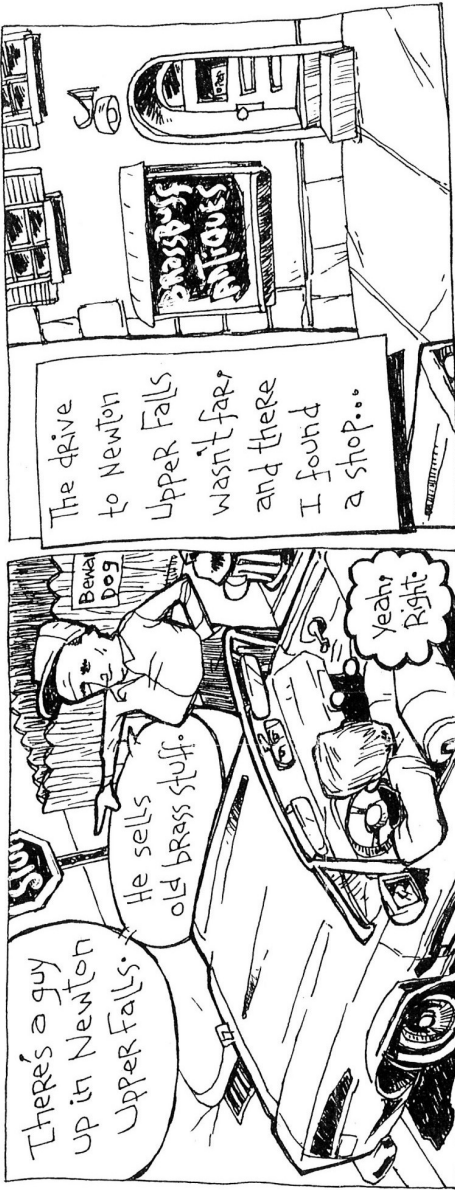 There's a guy
up in Newton
Upper Falls.
STOP
He sells
old brass stuff.
Bewar
Dog
Yeah,
Right.
The drive
to Newton
Upper Falls
wasn't far,
and there
I found
a shop...
BrassBuff
ANTiQUES